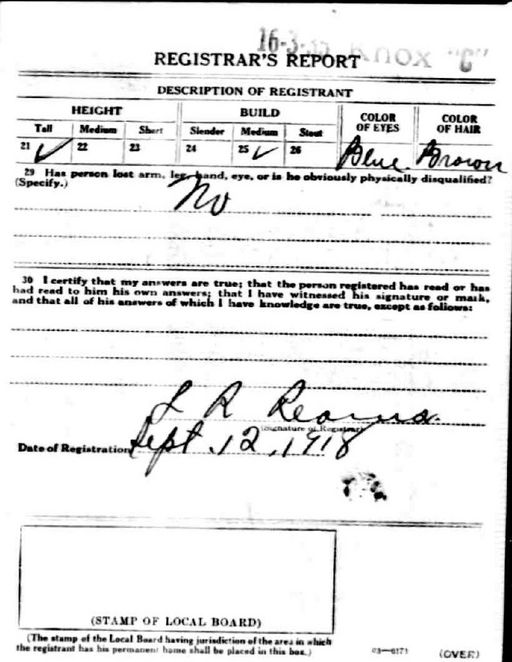 16-3-35 Knox "C"
REGISTRAR'S REPORT
DESCRIPTION OF REGISTRANT
HEIGHT BUILD COLOR OF EYES COLOR OF HAIR
Tall Medium Short Slender Medium Stout
21 ✓ 22 23 24 25 ✓ 26 Blue Brown
29 Has person lost arm, leg, hand, eye, or is he obviously physically disqualified?
(Specify.) No
30 I certify that my answers are true; that the person registered has read or has
had read to him his own answers; that I have witnessed his signature or mark,
and that all of his answers of which I have knowledge are true, except as follows:
L R Reams
(Signature of Registrar)
Date of Registration Sept. 12, 1918
(STAMP OF LOCAL BOARD)
(The stamp of the Local Board having jurisdiction of the area in which
the registrant has his permanent home shall be placed in this box.)
03—6171 (OVER)